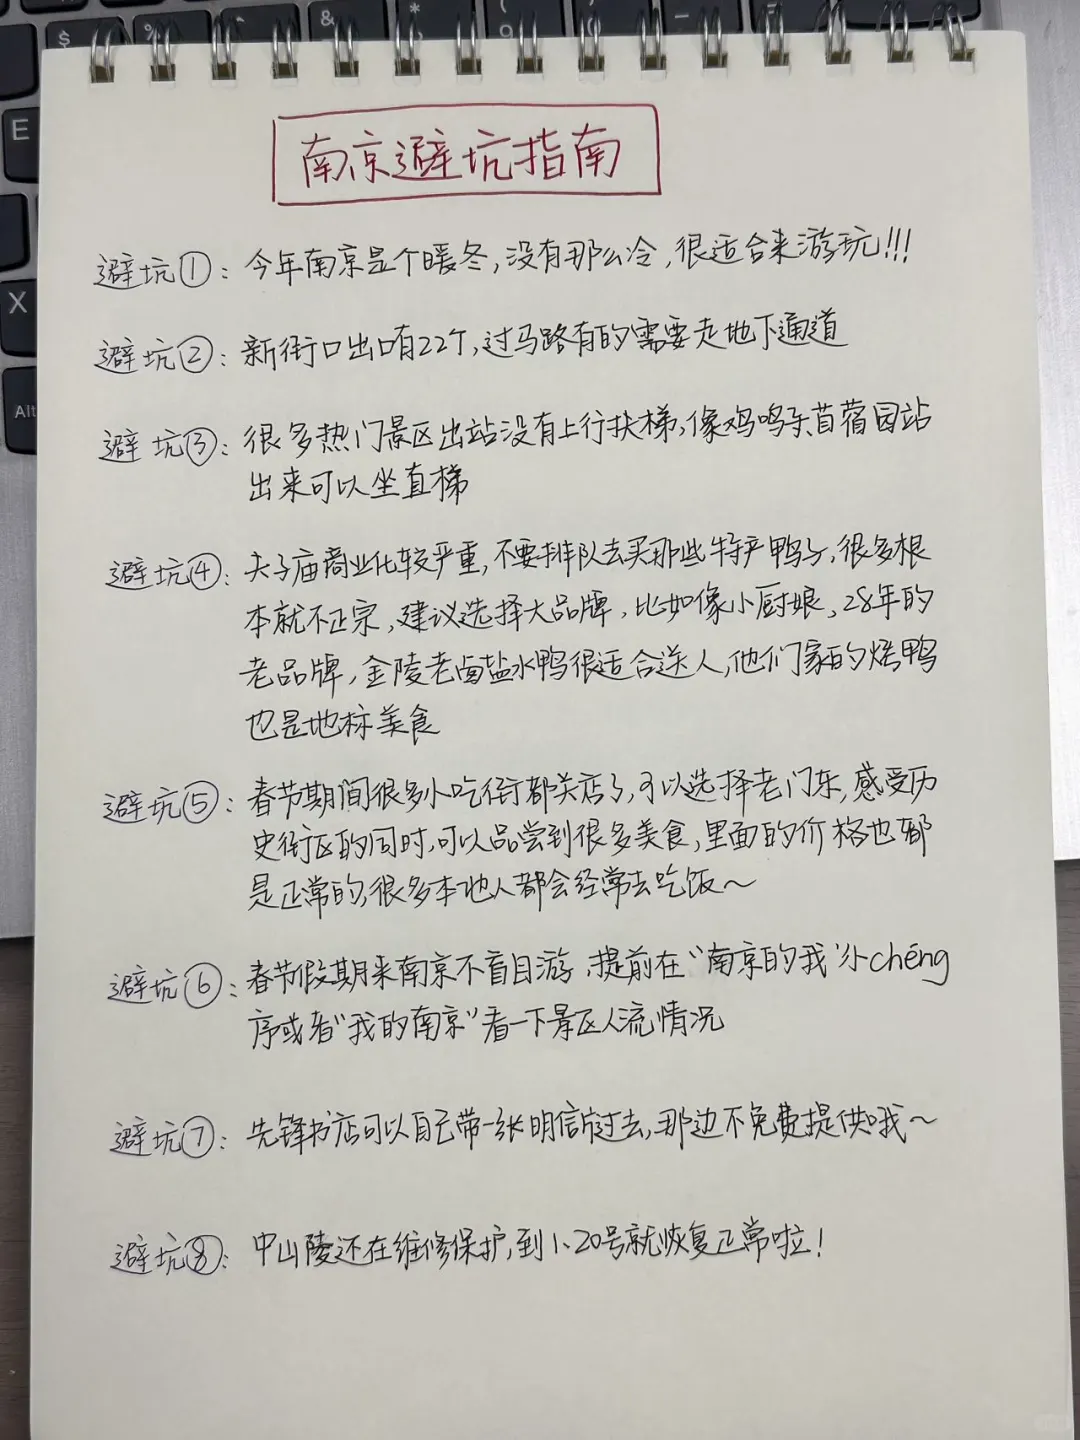 南京避坑指南
避坑①：今年南京是个暖冬，没有那么冷，很适合来游玩!!!
避坑②：新街口出口有22个，过马路有的需要走地下通道
避坑③：很多热门景区出站没有上行扶梯，像鸡鸣寺苜蓿园站
出来可以坐直梯
避坑④：夫子庙商业化较严重，不要排队去买那些特产鸭子，很多根
本就不正宗，建议选择大品牌，比如像小厨娘，28年的
老品牌，金陵老卤盐水鸭很适合送人，他们家的烤鸭
也是地标美食
避坑⑤：春节期间很多小吃街都关店了，可以选择老门东，感受历
史街区的同时，可以品尝到很多美食，里面的价格也都
是正常的，很多本地人都会经常去吃饭～
避坑⑥：春节假期来南京不盲目游，提前在“南京的我”小chéng
序或者“我的南京”看一下景区人流情况
避坑⑦：先锋书店可以自己带一张明信片过去，那边不免费提供哦～
避坑⑧：中山陵还在维修保护，到1.20号就恢复正常啦！
$
%
&
*
9
E
X
Alt